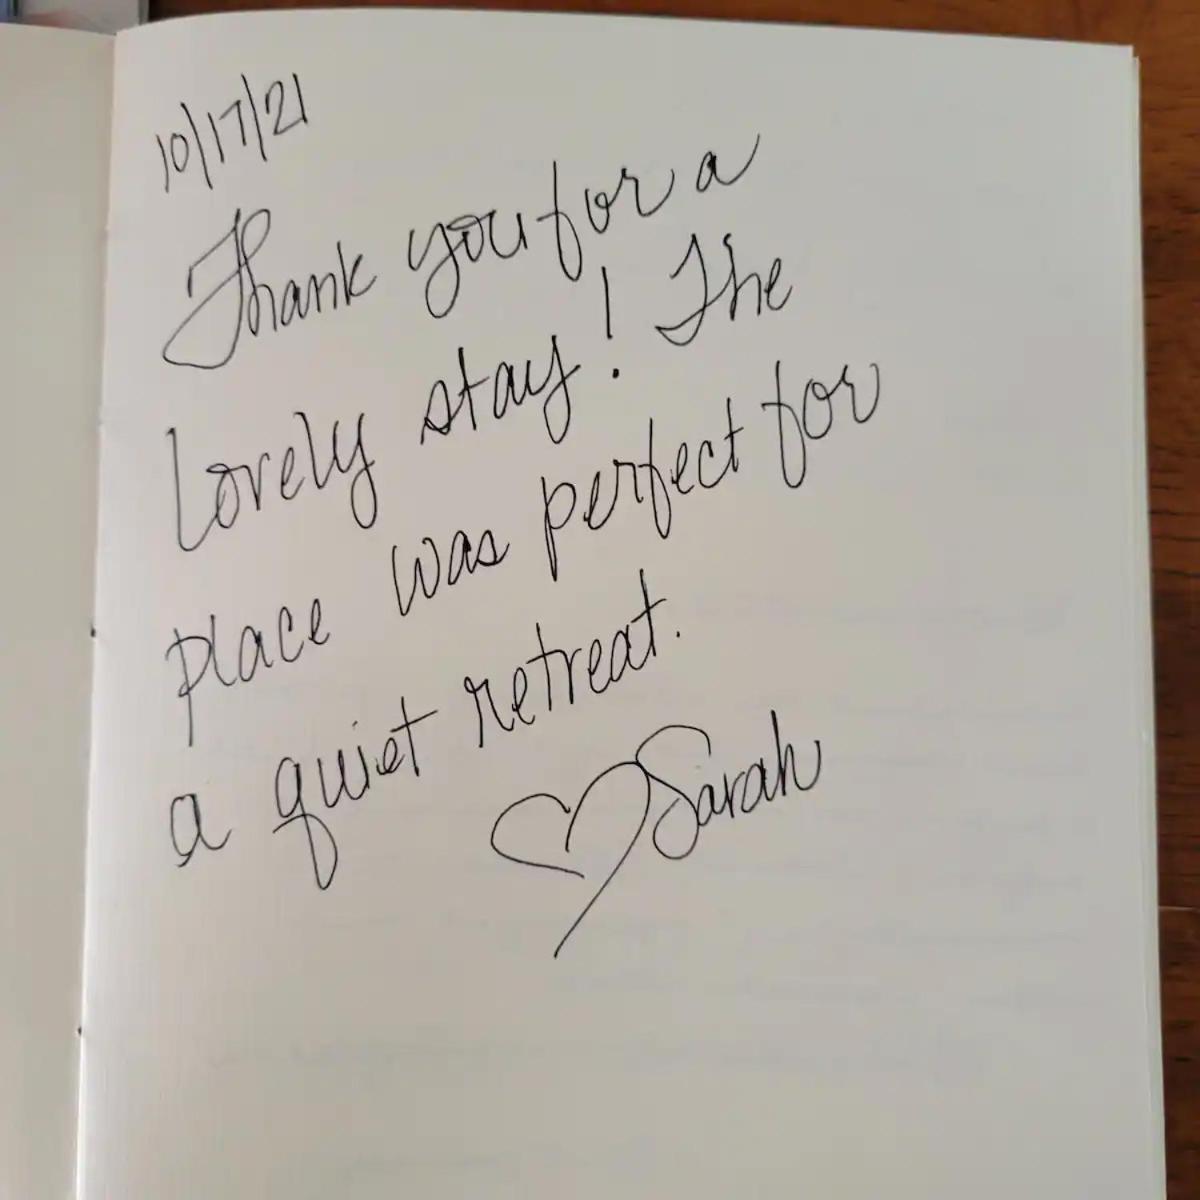 10/17/21
Thank you for a
lovely stay! The
place was perfect for
a quiet retreat.
♡ Sarah